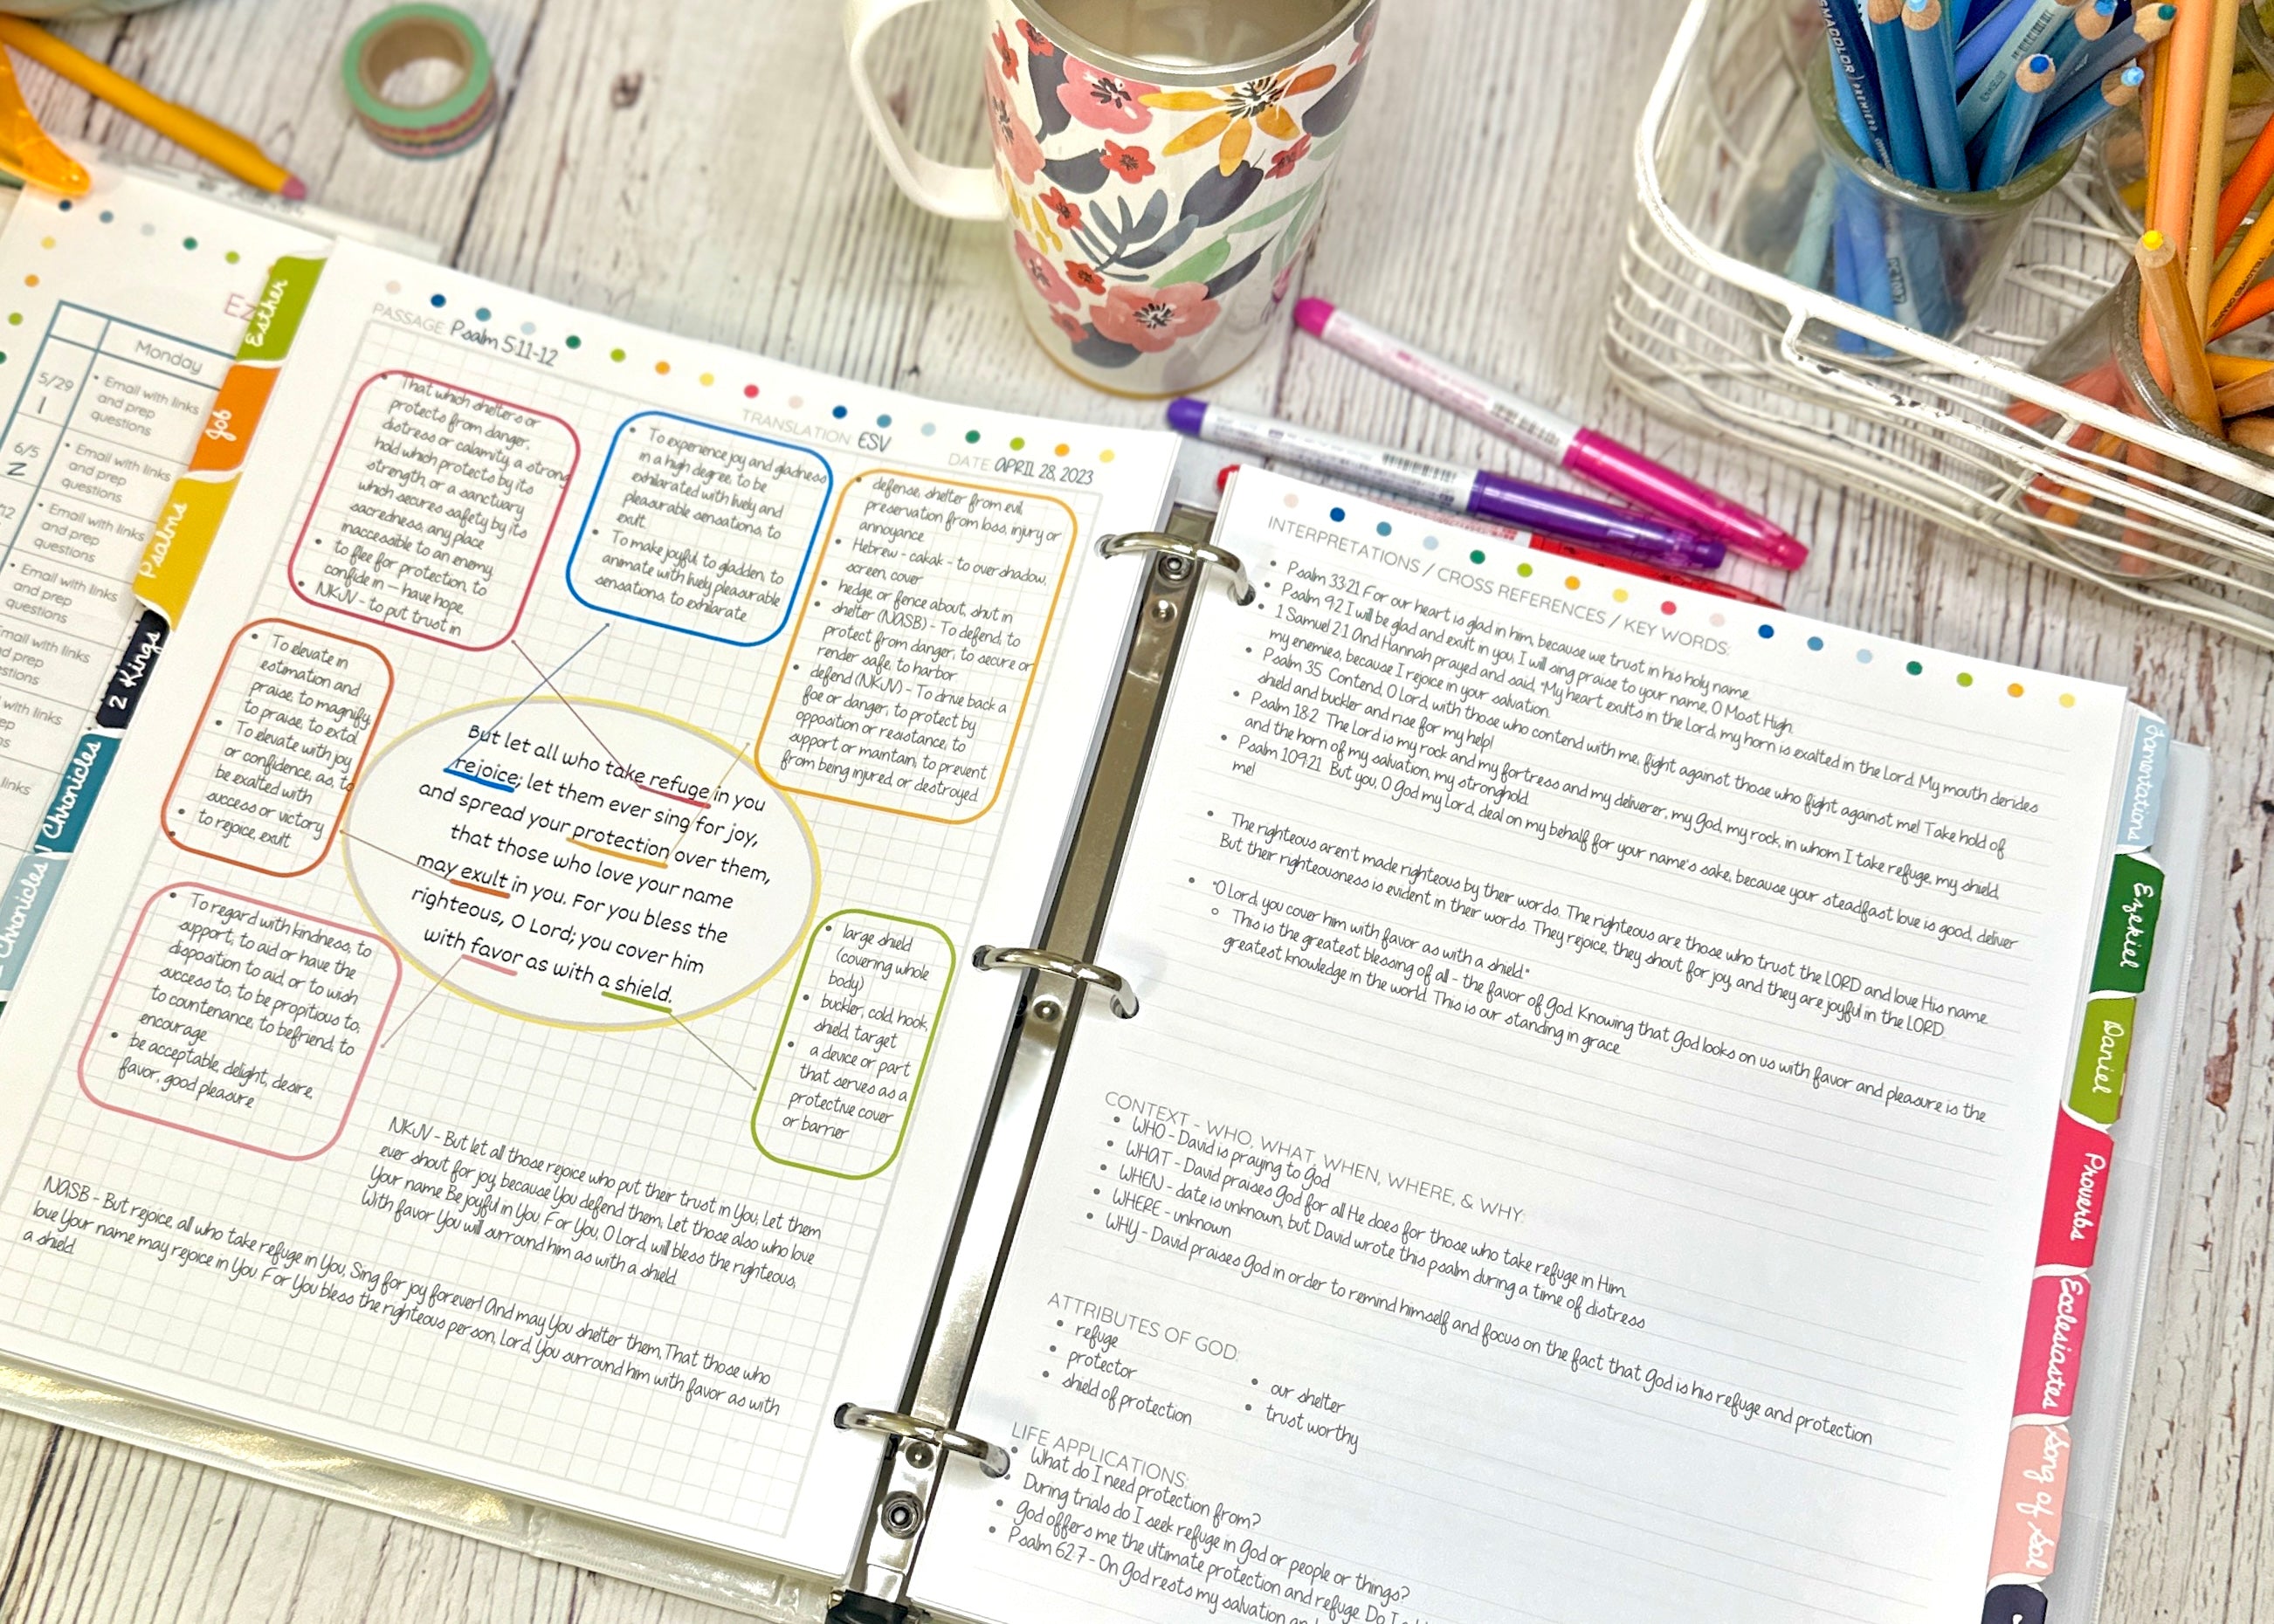 Ez
Monday
5/29
1
• Email with links
and prep
questions
6/5
2
• Email with links
and prep
questions
12
• Email with links
and prep
questions
• Email with links
and prep
questions
mail with links
d prep
stions
with links
ep
ns
links
Esther
Job
Psalms
2 Kings
Chronicles
Chronicles
PASSAGE: Psalm 5:11-12
TRANSLATION: ESV
DATE: APRIL 28, 2023
• That which shelters or
protects from danger,
distress or calamity, a strong
hold which protects by its
strength, or a sanctuary
which secures safety by its
sacredness, any place
inaccessible to an enemy
• to flee for protection, to
confide in - have hope
• NKJV - to put trust in
• To experience joy and gladness
in a high degree, to be
exhilarated with lively and
pleasurable sensations, to
exult.
• To make joyful, to gladden, to
animate with lively pleasurable
sensations, to exhilarate
• defense, shelter from evil,
preservation from loss, injury or
annoyance
• Hebrew - cakak - to overshadow,
screen, cover
• hedge or fence about, shut in
• shelter (NASB) - To defend, to
protect from danger, to secure or
render safe, to harbor
• defend (NKJV) - To drive back a
foe or danger, to protect by
opposition or resistance, to
support or maintain, to prevent
from being injured, or destroyed
• To elevate in
estimation and
praise, to magnify,
to praise, to extol
• To elevate with joy
or confidence, as, to
be exalted with
success or victory
• to rejoice, exult
•
But let all who take refuge in you
rejoice; let them ever sing for joy,
and spread your protection over them,
that those who love your name
may exult in you. For you bless the
righteous, O Lord; you cover him
with favor as with a shield.
• To regard with kindness, to
support, to aid or have the
disposition to aid, or to wish
success to, to be propitious to,
to countenance, to befriend, to
encourage
• be acceptable, delight, desire,
favor, good pleasure
• large shield
(covering whole
body)
• buckler, cold, hook,
shield, target
• a device or part
that serves as a
protective cover
or barrier
NKJV - But let all those rejoice who put their trust in You; Let them
ever shout for joy, because You defend them; Let those also who love
Your name Be joyful in You. For You, O Lord, will bless the righteous;
With favor You will surround him as with a shield.
NASB - But rejoice, all who take refuge in You, Sing for joy forever! And may You shelter them, That those who
love Your name may rejoice in You. For You bless the righteous person, Lord, You surround him with favor as with
a shield.
INTERPRETATIONS / CROSS REFERENCES / KEY WORDS:
• Psalm 33:21 For our heart is glad in him, because we trust in his holy name.
• Psalm 9:2 I will be glad and exult in you; I will sing praise to your name, O Most High.
• 1 Samuel 2:1 And Hannah prayed and said, "My heart exults in the Lord; my horn is exalted in the Lord. My mouth derides
my enemies, because I rejoice in your salvation.
• Psalm 35 Contend, O Lord, with those who contend with me; fight against those who fight against me! Take hold of
shield and buckler and rise for my help!
• Psalm 18:2 The Lord is my rock and my fortress and my deliverer, my God, my rock, in whom I take refuge, my shield,
and the horn of my salvation, my stronghold.
• Psalm 109:21 But you, O God my Lord, deal on my behalf for your name's sake; because your steadfast love is good, deliver
me!
• The righteous aren't made righteous by their words. The righteous are those who trust the LORD and love His name.
But their righteousness is evident in their words. They rejoice, they shout for joy, and they are joyful in the LORD.
• "O Lord, you cover him with favor as with a shield."
○ This is the greatest blessing of all - the favor of God. Knowing that God looks on us with favor and pleasure is the
greatest knowledge in the world. This is our standing in grace.
CONTEXT - WHO, WHAT, WHEN, WHERE, & WHY:
• WHO - David is praying to God
• WHAT - David praises God for all He does for those who take refuge in Him.
• WHEN - date is unknown, but David wrote this psalm during a time of distress
• WHERE - unknown
• WHY - David praises God in order to remind himself and focus on the fact that God is his refuge and protection
ATTRIBUTES OF GOD:
• refuge
• protector
• shield of protection
• our shelter
• trust worthy
LIFE APPLICATIONS:
• What do I need protection from?
• During trials do I seek refuge in God or people or things?
• God offers me the ultimate protection and refuge. Do I
• Psalm 62:7 - On God rests my salvation and
Lamentations
Ezekiel
Daniel
Proverbs
Ecclesiastes
Song of Sol
PREMIER